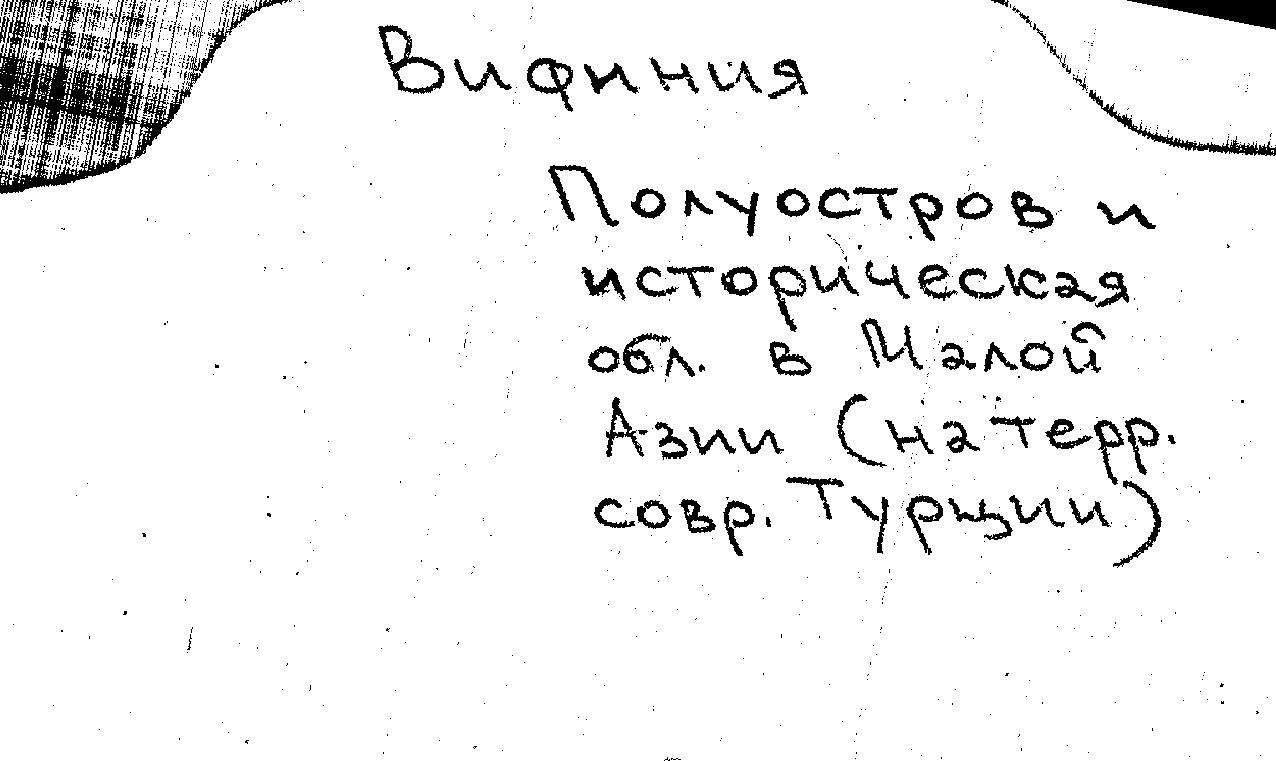 Вифиния
Полуостров и
историческая
обл. в Малой
Азии (на терр.
совр. Турции)